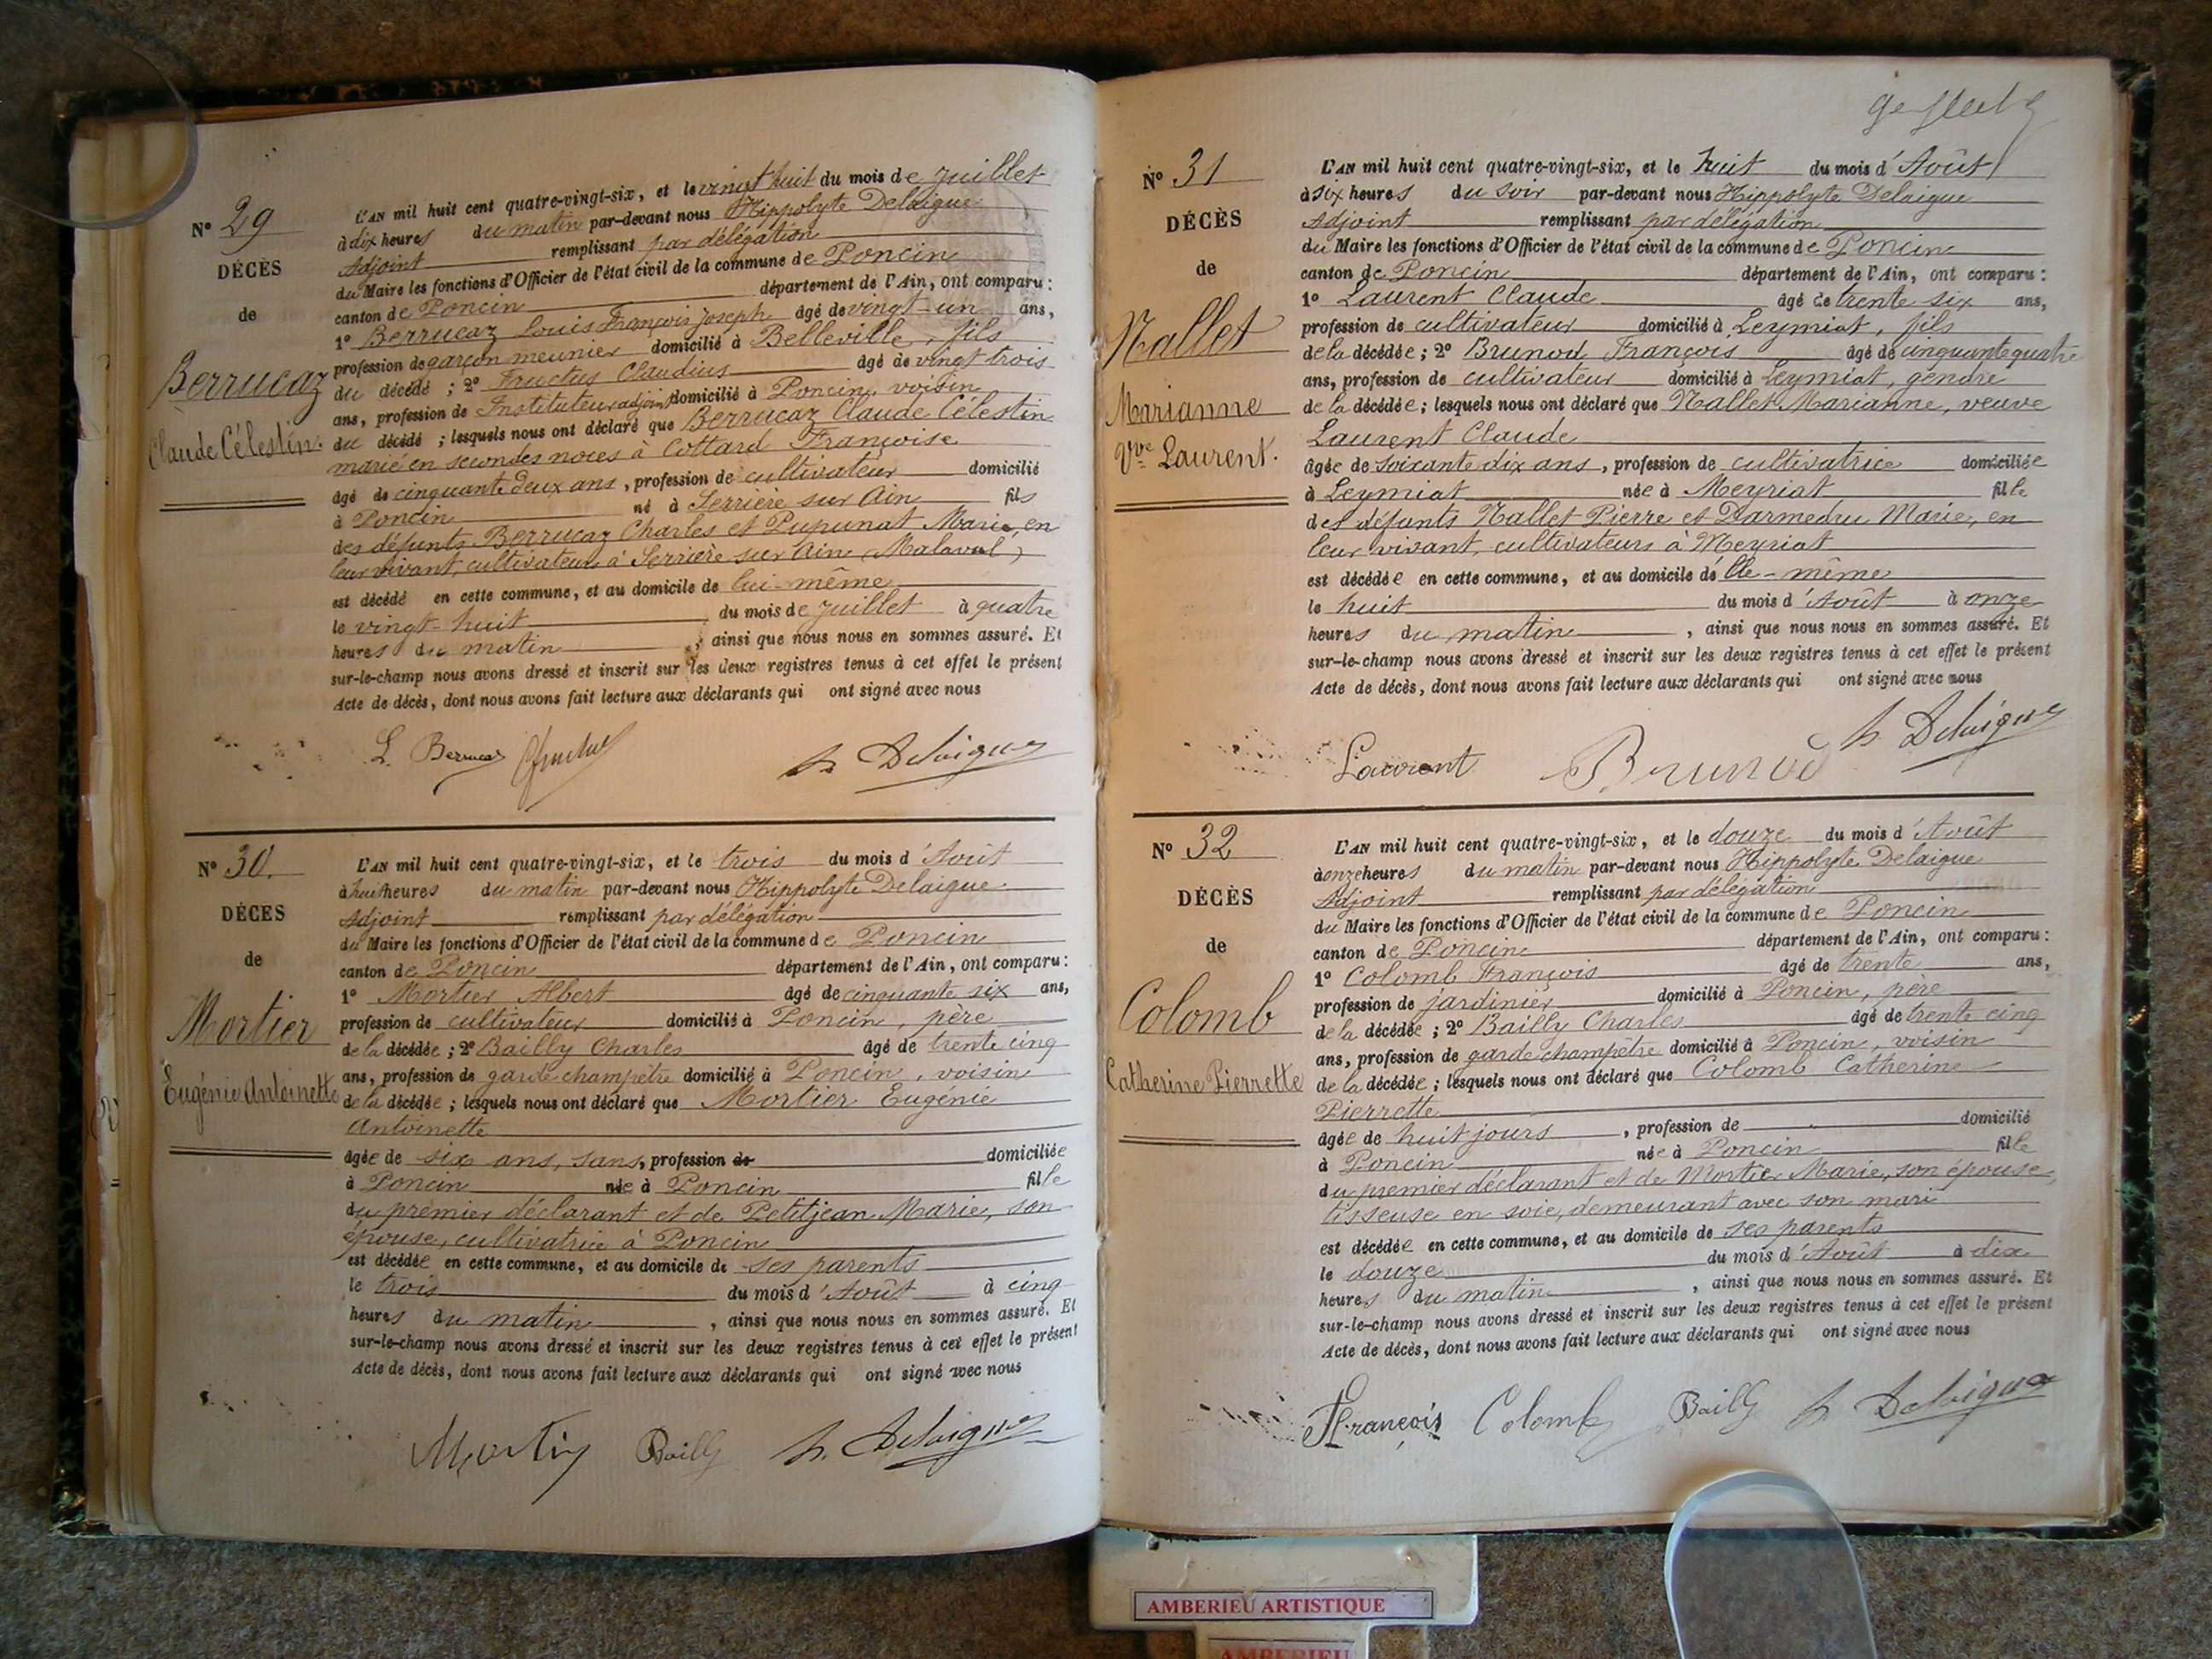 N° 29
DÉCÈS
de
Berrucaz
Claude Célestin.
L'AN mil huit cent quatre-vingt-six, et le vingt huit du mois de Juillet
à dix heures du matin par-devant nous Hippolyte Delaigue
Adjoint remplissant par délégation
du Maire les fonctions d'Officier de l'état civil de la commune de Poncin
canton de Poncin département de l'Ain, ont comparu :
1° Berrucaz Louis François Joseph âgé de vingt-un ans,
profession de garçon meunier domicilié à Belleville, fils
du décédé ; 2° Fructus Claudius âgé de vingt trois
ans, profession de Instituteur adjoint domicilié à Poncin, voisin
du décédé ; lesquels nous ont déclaré que Berrucaz Claude Célestin
marié en secondes noces à Cottard Françoise
âgé de cinquante deux ans, profession de cultivateur domicilié
à Poncin né à Serrière sur Ain fils
des défunts Berrucaz Charles et Pupunat Marie, en
leur vivant, cultivateurs à Serrière sur Ain (Malaval)
est décédé en cette commune, et au domicile de lui-même
le vingt-huit du mois de Juillet à quatre
heures du matin, ainsi que nous nous en sommes assuré. Et
sur-le-champ nous avons dressé et inscrit sur les deux registres tenus à cet effet le présent
Acte de décès, dont nous avons fait lecture aux déclarants qui ont signé avec nous
L. Berrucaz h. Delaigue
N° 30.
DÉCES
de
Mortier
Eugénie Antoinette
L'AN mil huit cent quatre-vingt-six, et le trois du mois d'Août
à huit heures du matin par-devant nous Hippolyte Delaigue.
Adjoint remplissant par délégation
du Maire les fonctions d'Officier de l'état civil de la commune de Poncin
canton de Poncin département de l'Ain, ont comparu :
1° Mortier Albert âgé de cinquante six ans,
profession de cultivateur domicilié à Poncin, père
de la décédée ; 2° Bailly Charles âgé de trente cinq
ans, profession de garde champêtre domicilié à Poncin, voisin
de la décédée ; lesquels nous ont déclaré que Mortier Eugénie
Antoinette
âgée de six ans, sans, profession de domiciliée
à Poncin née à Poncin fille
du premier déclarant et de Petitjean Marie, son
épouse, cultivatrice à Poncin
est décédée en cette commune, et au domicile de ses parents
le trois du mois d'Août à cinq
heures du matin, ainsi que nous nous en sommes assuré. Et
sur-le-champ nous avons dressé et inscrit sur les deux registres tenus à cet effet le présent
Acte de décès, dont nous avons fait lecture aux déclarants qui ont signé avec nous
Mortier Bailly h. Delaigue
N° 31
DÉCÈS
de
Nallet
Marianne
Vve Laurent.
L'AN mil huit cent quatre-vingt-six, et le huit du mois d'Août
à six heures du soir par-devant nous Hippolyte Delaigue
Adjoint remplissant par délégation
du Maire les fonctions d'Officier de l'état civil de la commune de Poncin
canton de Poncin département de l'Ain, ont comparu :
1° Laurent Claude âgé de trente six ans,
profession de cultivateur domicilié à Leymiat, fils
de la décédée ; 2° Brunod François âgé de cinquante quatre
ans, profession de cultivateur domicilié à Leymiat, gendre
de la décédée ; lesquels nous ont déclaré que Nallet Marianne, veuve
Laurent Claude
âgée de soixante dix ans, profession de cultivatrice domiciliée
à Leymiat née à Meyriat fille
des défunts Nallet Pierre et Darmedru Marie, en
leur vivant, cultivateurs à Meyriat
est décédée en cette commune, et au domicile d'elle-même
le huit du mois d'Août à onze
heures du matin, ainsi que nous nous en sommes assuré. Et
sur-le-champ nous avons dressé et inscrit sur les deux registres tenus à cet effet le présent
Acte de décès, dont nous avons fait lecture aux déclarants qui ont signé avec nous
Laurent Brunod h Delaigue
N° 32
DÉCÈS
de
Colomb
Catherine Pierrette
L'AN mil huit cent quatre-vingt-six, et le douze du mois d'Août
à onze heures du matin par-devant nous Hippolyte Delaigue
Adjoint remplissant par délégation
du Maire les fonctions d'Officier de l'état civil de la commune de Poncin
canton de Poncin département de l'Ain, ont comparu :
1° Colomb François âgé de trente ans,
profession de jardinier domicilié à Poncin, père
de la décédée ; 2° Bailly Charles âgé de trente cinq
ans, profession de garde champêtre domicilié à Poncin, voisin
de la décédée ; lesquels nous ont déclaré que Colomb Catherine
Pierrette
âgée de huit jours, profession de domicilié
à Poncin née à Poncin fille
du premier déclarant et de Mortier Marie, son épouse,
tisseuse en soie, demeurant avec son mari
est décédée en cette commune, et au domicile de ses parents
le douze du mois d'Août à dix
heures du matin, ainsi que nous nous en sommes assuré. Et
sur-le-champ nous avons dressé et inscrit sur les deux registres tenus à cet effet le présent
Acte de décès, dont nous avons fait lecture aux déclarants qui ont signé avec nous
François Colomb Bailly h Delaigue
AMBERIEU ARTISTIQUE
AMBERIEU